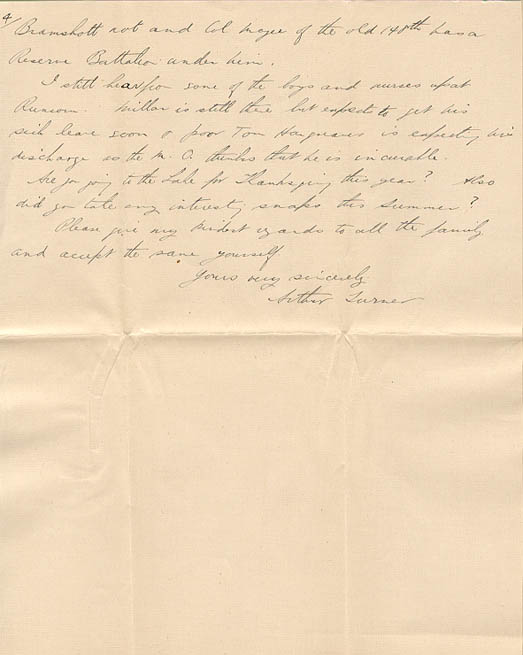 4/
Bramshott not and Col Magee of the old 148th has a
Reserve Battalion under him.
I still hear from some of the boys and nurses up at
Runcorn. Millar is still there but expects to get his
sick leave soon & poor Tom Hargreaves is expecting his
discharge as the M.O. thinks that he is incurable.
Are you going to the Lake for Thanksgiving this year? Also
did you take any interesting snaps this summer?
Please give my kindest regards to all the family
and accept the same yourself.
Yours very sincerely
Arthur Turner